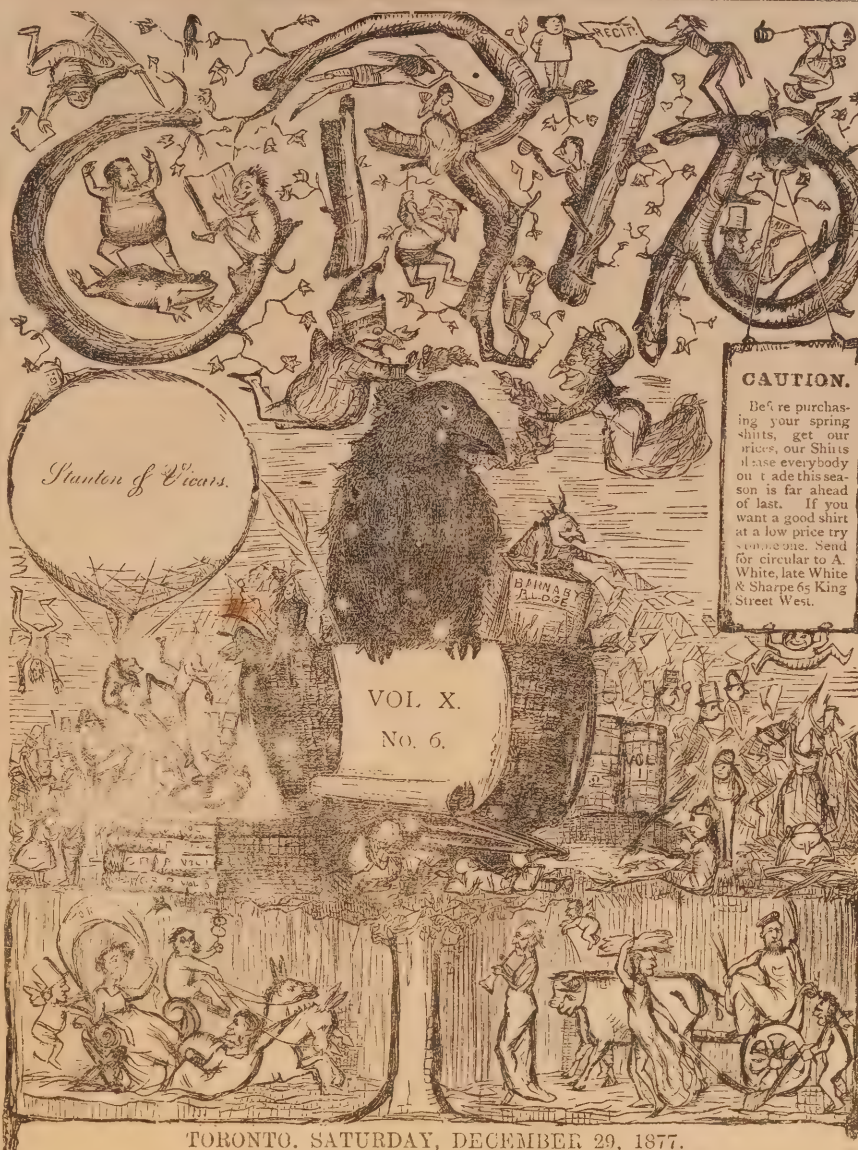 GRIP
RECIP.
CAUTION.
Before purchas-
ing your spring
shirts, get our
prices, our Shirts
please everybody
our trade this sea-
son is far ahead
of last. If you
want a good shirt
at a low price try
one. Send
for circular to A.
White, late White
& Sharpe 65 King
Street West.
Stanton & Vicars.
BARNABY
RUDGE
VOL X.
No. 6.
VOL
II
GRIP VOL 1
VOL 3
TORONTO, SATURDAY, DECEMBER 29, 1877.